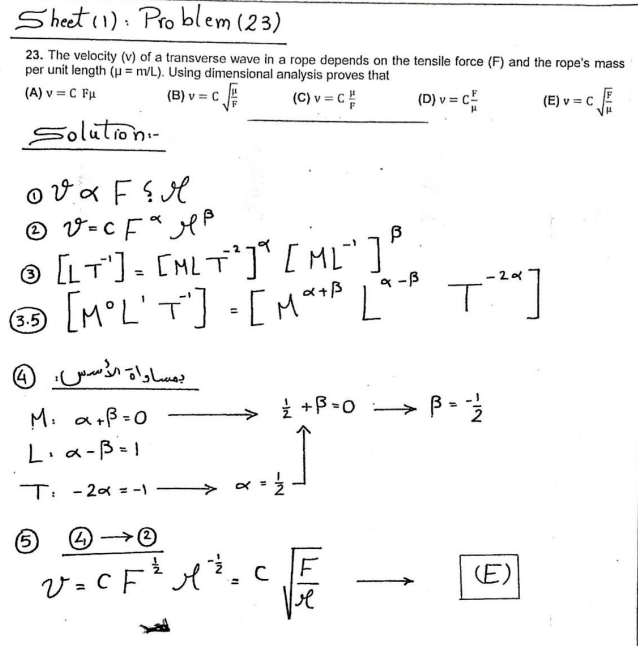 Sheet (1): Problem (23)
23. The velocity (v) of a transverse wave in a rope depends on the tensile force (F) and the rope's mass
per unit length (μ = m/L). Using dimensional analysis proves that
(A) v = C Fμ (B) v = C √(μ/F) (C) v = C μ/F (D) v = C F/μ (E) v = C √(F/μ)
Solution:-
① v α F & μ
② v = c F^α μ^β
③ [L T⁻¹] = [M L T⁻²]^α [M L⁻¹]^β
(3.5) [M⁰ L¹ T⁻¹] = [M^(α+β) L^(α-β) T^(-2α)]
④ بمساواة الأسس:
M: α+β=0 → ½ + β = 0 → β = -½
L: α-β=1
T: -2α = -1 → α = ½
⑤ ④ → ②
v = c F^½ μ^-½ = c √(F/μ) → (E)